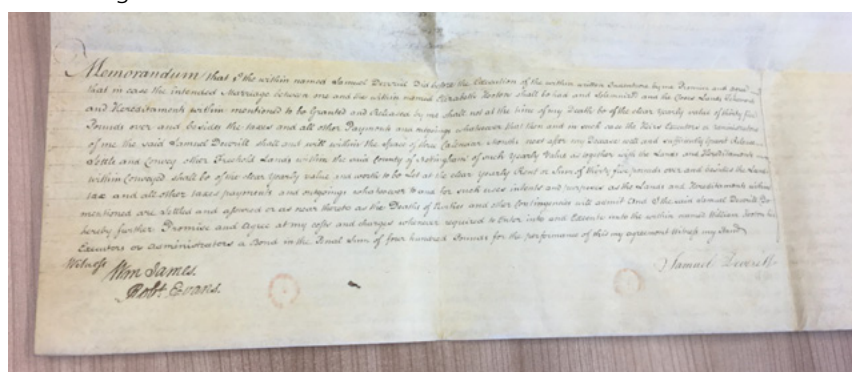 Memorandum that I the within named Samuel Deverill Did before the Execution of the within written Indenture by me Promise and agree
that in case the intended Marriage between me and the within named Elizabeth shall be had and Solemnized and the Lands Tenements
and Hereditaments within mentioned to be Granted and Released by me shall not at the time of my Death be of the clear yearly value of thirty five
Pounds over and besides the taxes and all other Payments and outgoings whatsoever that then and in such case the Heirs Executors or Administrators
of me the said Samuel Deverill shall and will within the Space of three Calendar Months next after my Decease well and sufficiently Grant Release
Settle and Convey other Freehold Lands within the said County of Nottingham of such yearly value as together with the Lands and Hereditaments
within Conveyed shall be of the clear yearly value and worth to be Let at the clear yearly Rent or Sum of thirty five pounds over and besides the Land
tax and all other taxes payments and outgoings whatsoever To and for such uses intents and purposes as the Lands and Hereditaments within
mentioned are Settled and assured or as near thereto as the Deaths of Parties and other Contingencies will admit And I the said Samuel Deverill Do
hereby further Promise and Agree at my costs and charges whenever required to Enter into and Execute unto the within named William his
Executors or Administrators a Bond in the Penal Sum of four hundred Pounds for the performance of this my agreement Witness my Hand
Witness
Wm James
Robt Evans.
Samuel Deverill